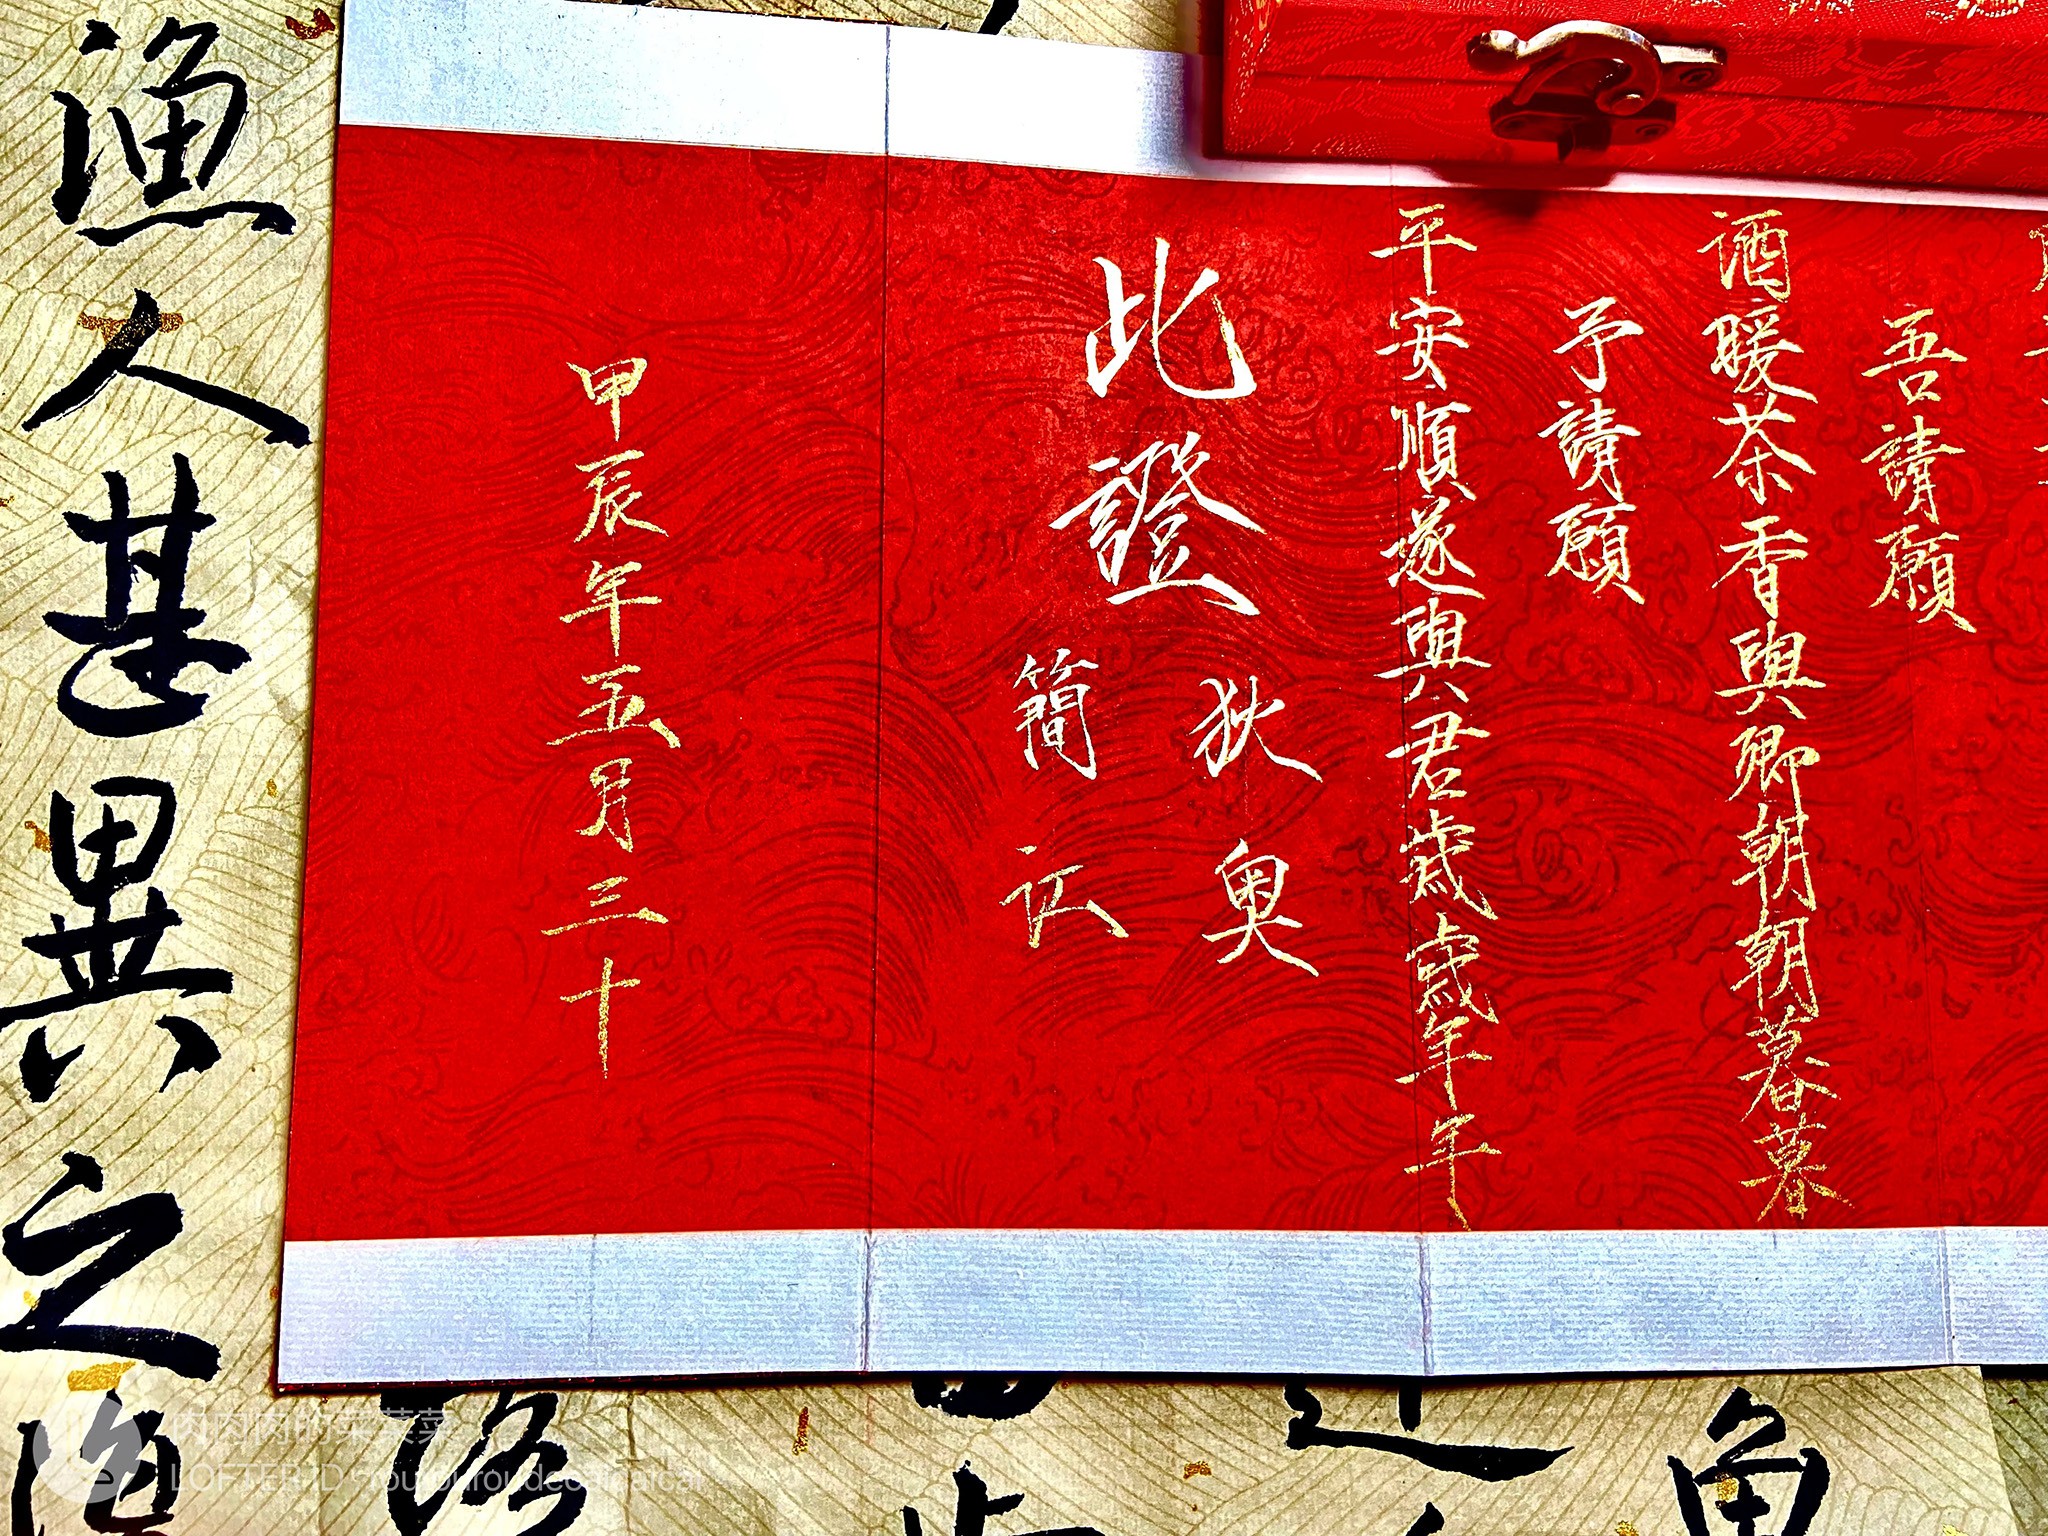 吾請願
酒暖茶香與卿朝朝暮暮
予請願
平安順遂與君歲歲年年
此證
狄奧
簡
甲辰年五月三十
漁人甚異之
肉肉肉的菜菜菜